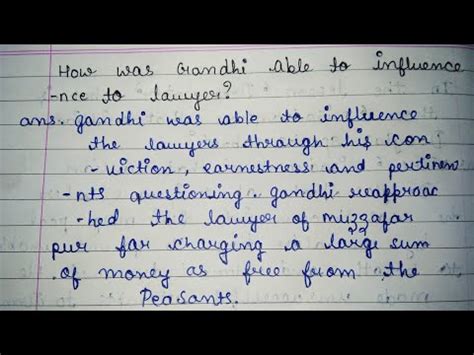 How was Gandhi able to influence
-nce to lawyer?
ans. gandhi was able to influence
the lawyers through his con
- viction, earnestness and pertinen
-nts questioning. gandhi reapproac
-hed the lawyer of muzzafar
pur far charging a large sum
of money as free from the
Peasants.